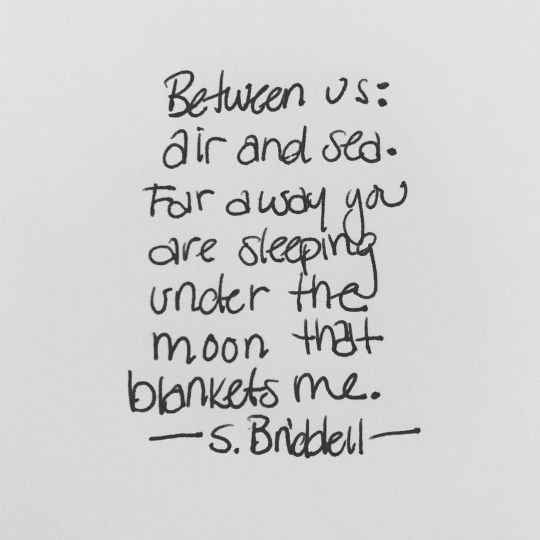 Between us:
air and sea.
Far away you
are sleeping
under the
moon that
blankets me.
— S. Briddell —